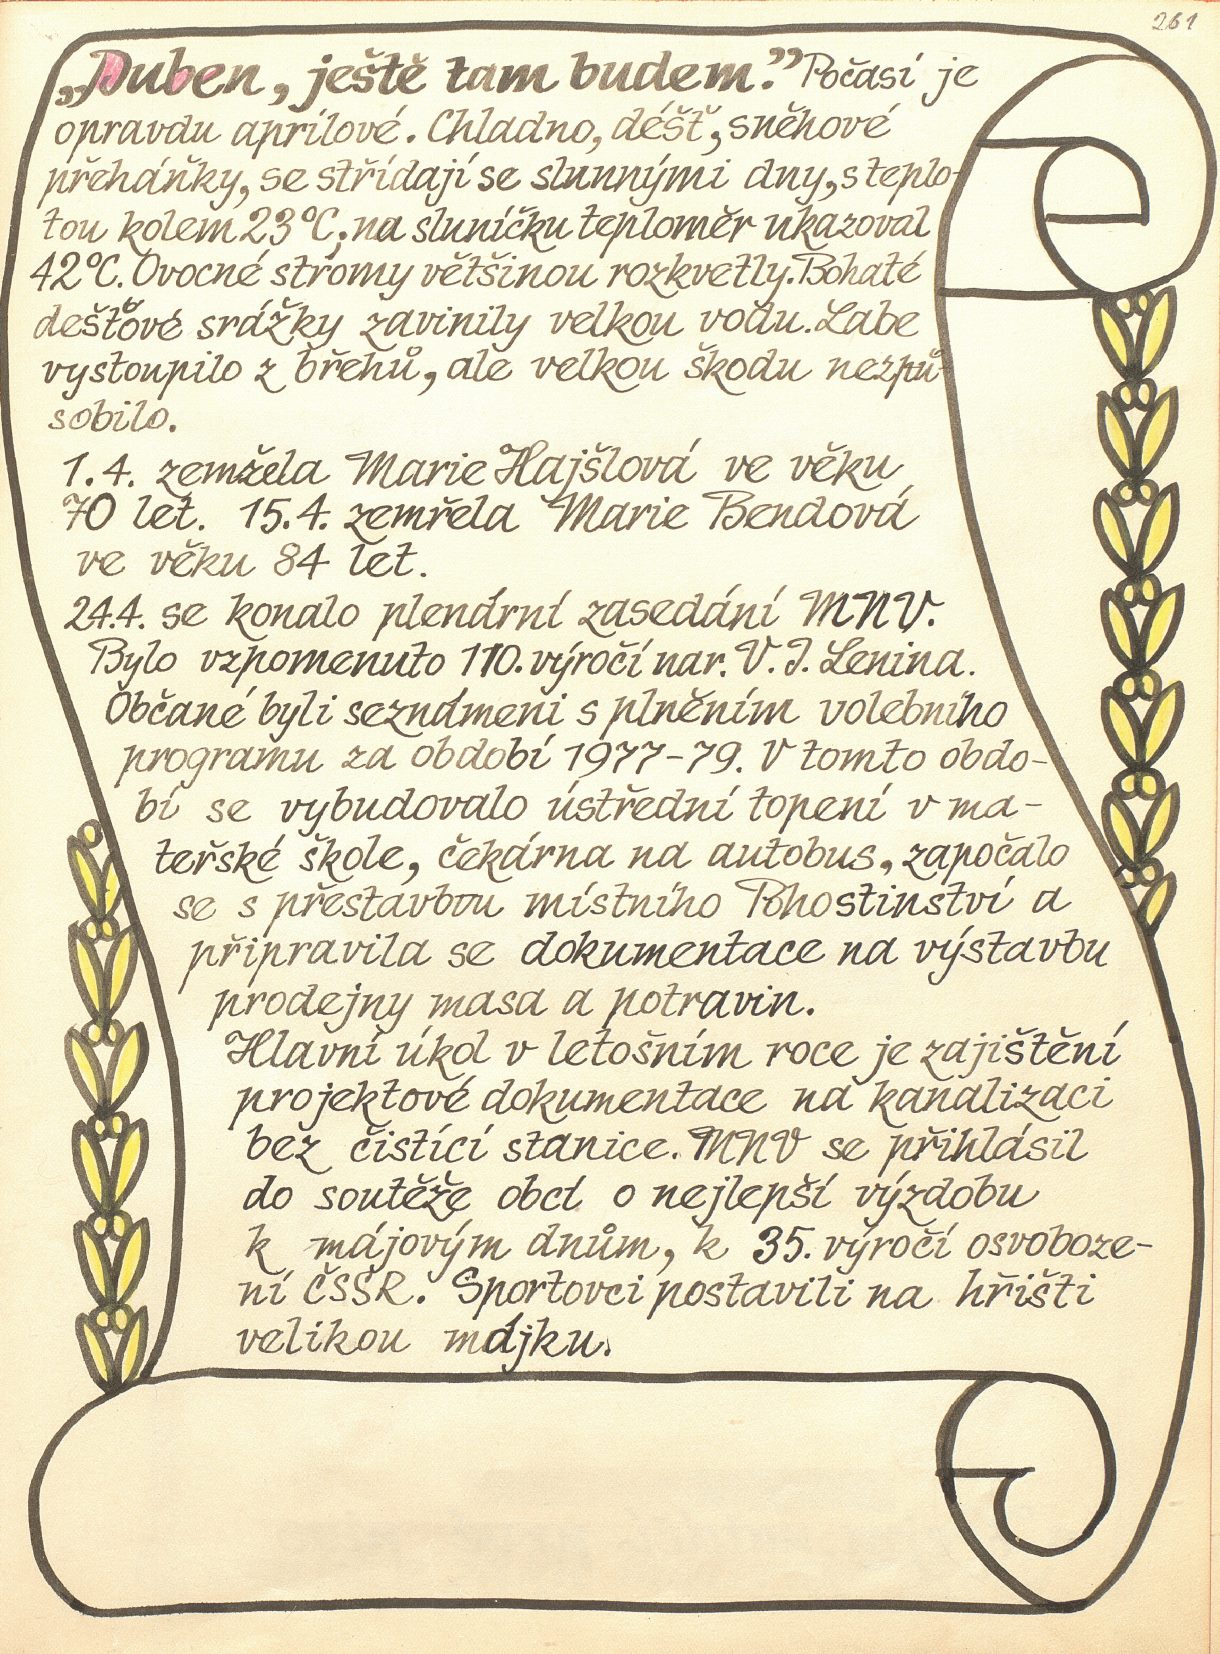 261
„Duben, ještě tam budem.” Počasí je
opravdu aprílové. Chladno, déšť, sněhové
přeháňky, se střídají se slunnými dny, s teplo-
tou kolem 23°C, na sluníčku teploměr ukazoval
42°C. Ovocné stromy většinou rozkvetly. Bohaté
dešťové srážky zavinily velkou vodu. Labe
vystoupilo z břehů, ale velkou škodu nezpů-
sobilo.
1.4. zemžela Marie Hajšlová ve věku
70 let. 15.4. zemřela Marie Bendová
ve věku 84 let.
24.4. se konalo plenární zasedání MNV.
Bylo vzpomenuto 110. výročí nar. V. I. Lenina.
Občané byli seznámeni s plněním volebního
programu za období 1977-79. V tomto obdo-
bí se vybudovalo ústřední topení v ma-
teřské škole, čekárna na autobus, započalo
se s přestavbou místního Pohostinství a
připravila se dokumentace na výstavbu
prodejny masa a potravin.
Hlavní úkol v letošním roce je zajištění
projektové dokumentace na kanalizaci
bez čistící stanice. MNV se přihlásil
do soutěže obcí o nejlepší výzdobu
k májovým dnům, k 35. výročí osvoboze-
ní ČSSR. Sportovci postavili na hřišti
velikou májku.